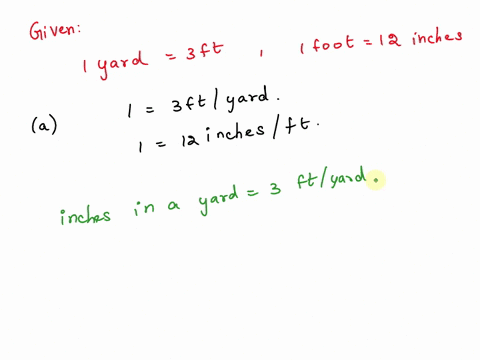 Given:
1 yard = 3ft , 1 foot = 12 inches
(a) 1 = 3ft/yard.
1 = 12 inches/ft.
inches in a yard = 3 ft/yard.